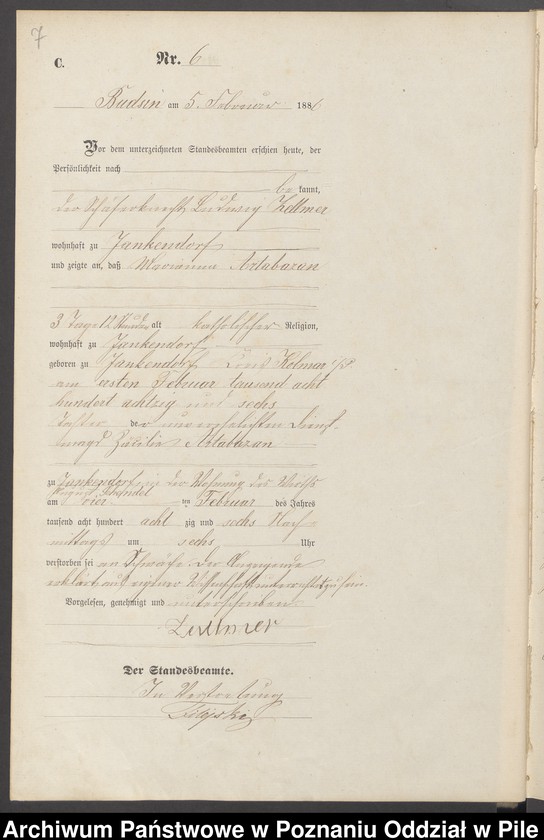 7
C.
Nr. 6
Budsin am 5. Februar 1886
Vor dem unterzeichneten Standesbeamten erschien heute, der
Persönlichkeit nach
be kannt,
der Schäferknecht Ludwig Zellmer
wohnhaft zu Jankendorf
und zeigte an, daß Marianna Artabazan
3 Tage 12 Stunden alt katholischer Religion,
wohnhaft zu Jankendorf
geboren zu Jankendorf Kreis Kolmar i/P.
am ersten Februar tausend acht
hundert achtzig und sechs
Tochter der unverehelichten Dienst-
magd Artabazan
zu Jankendorf in der Wohnung des Wirths
August
am vier ten Februar des Jahres
tausend acht hundert acht zig und sechs Nach-
mittags um sechs Uhr
verstorben sei an Schwäche. Der Anzeigende
erklärt aus eigener Wissenschaft unterrichtet zu sein.
Vorgelesen, genehmigt und unterschrieben
Zellmer
Der Standesbeamte.
In Vertretung
Archiwum Państwowe w Poznaniu Oddział w Pile